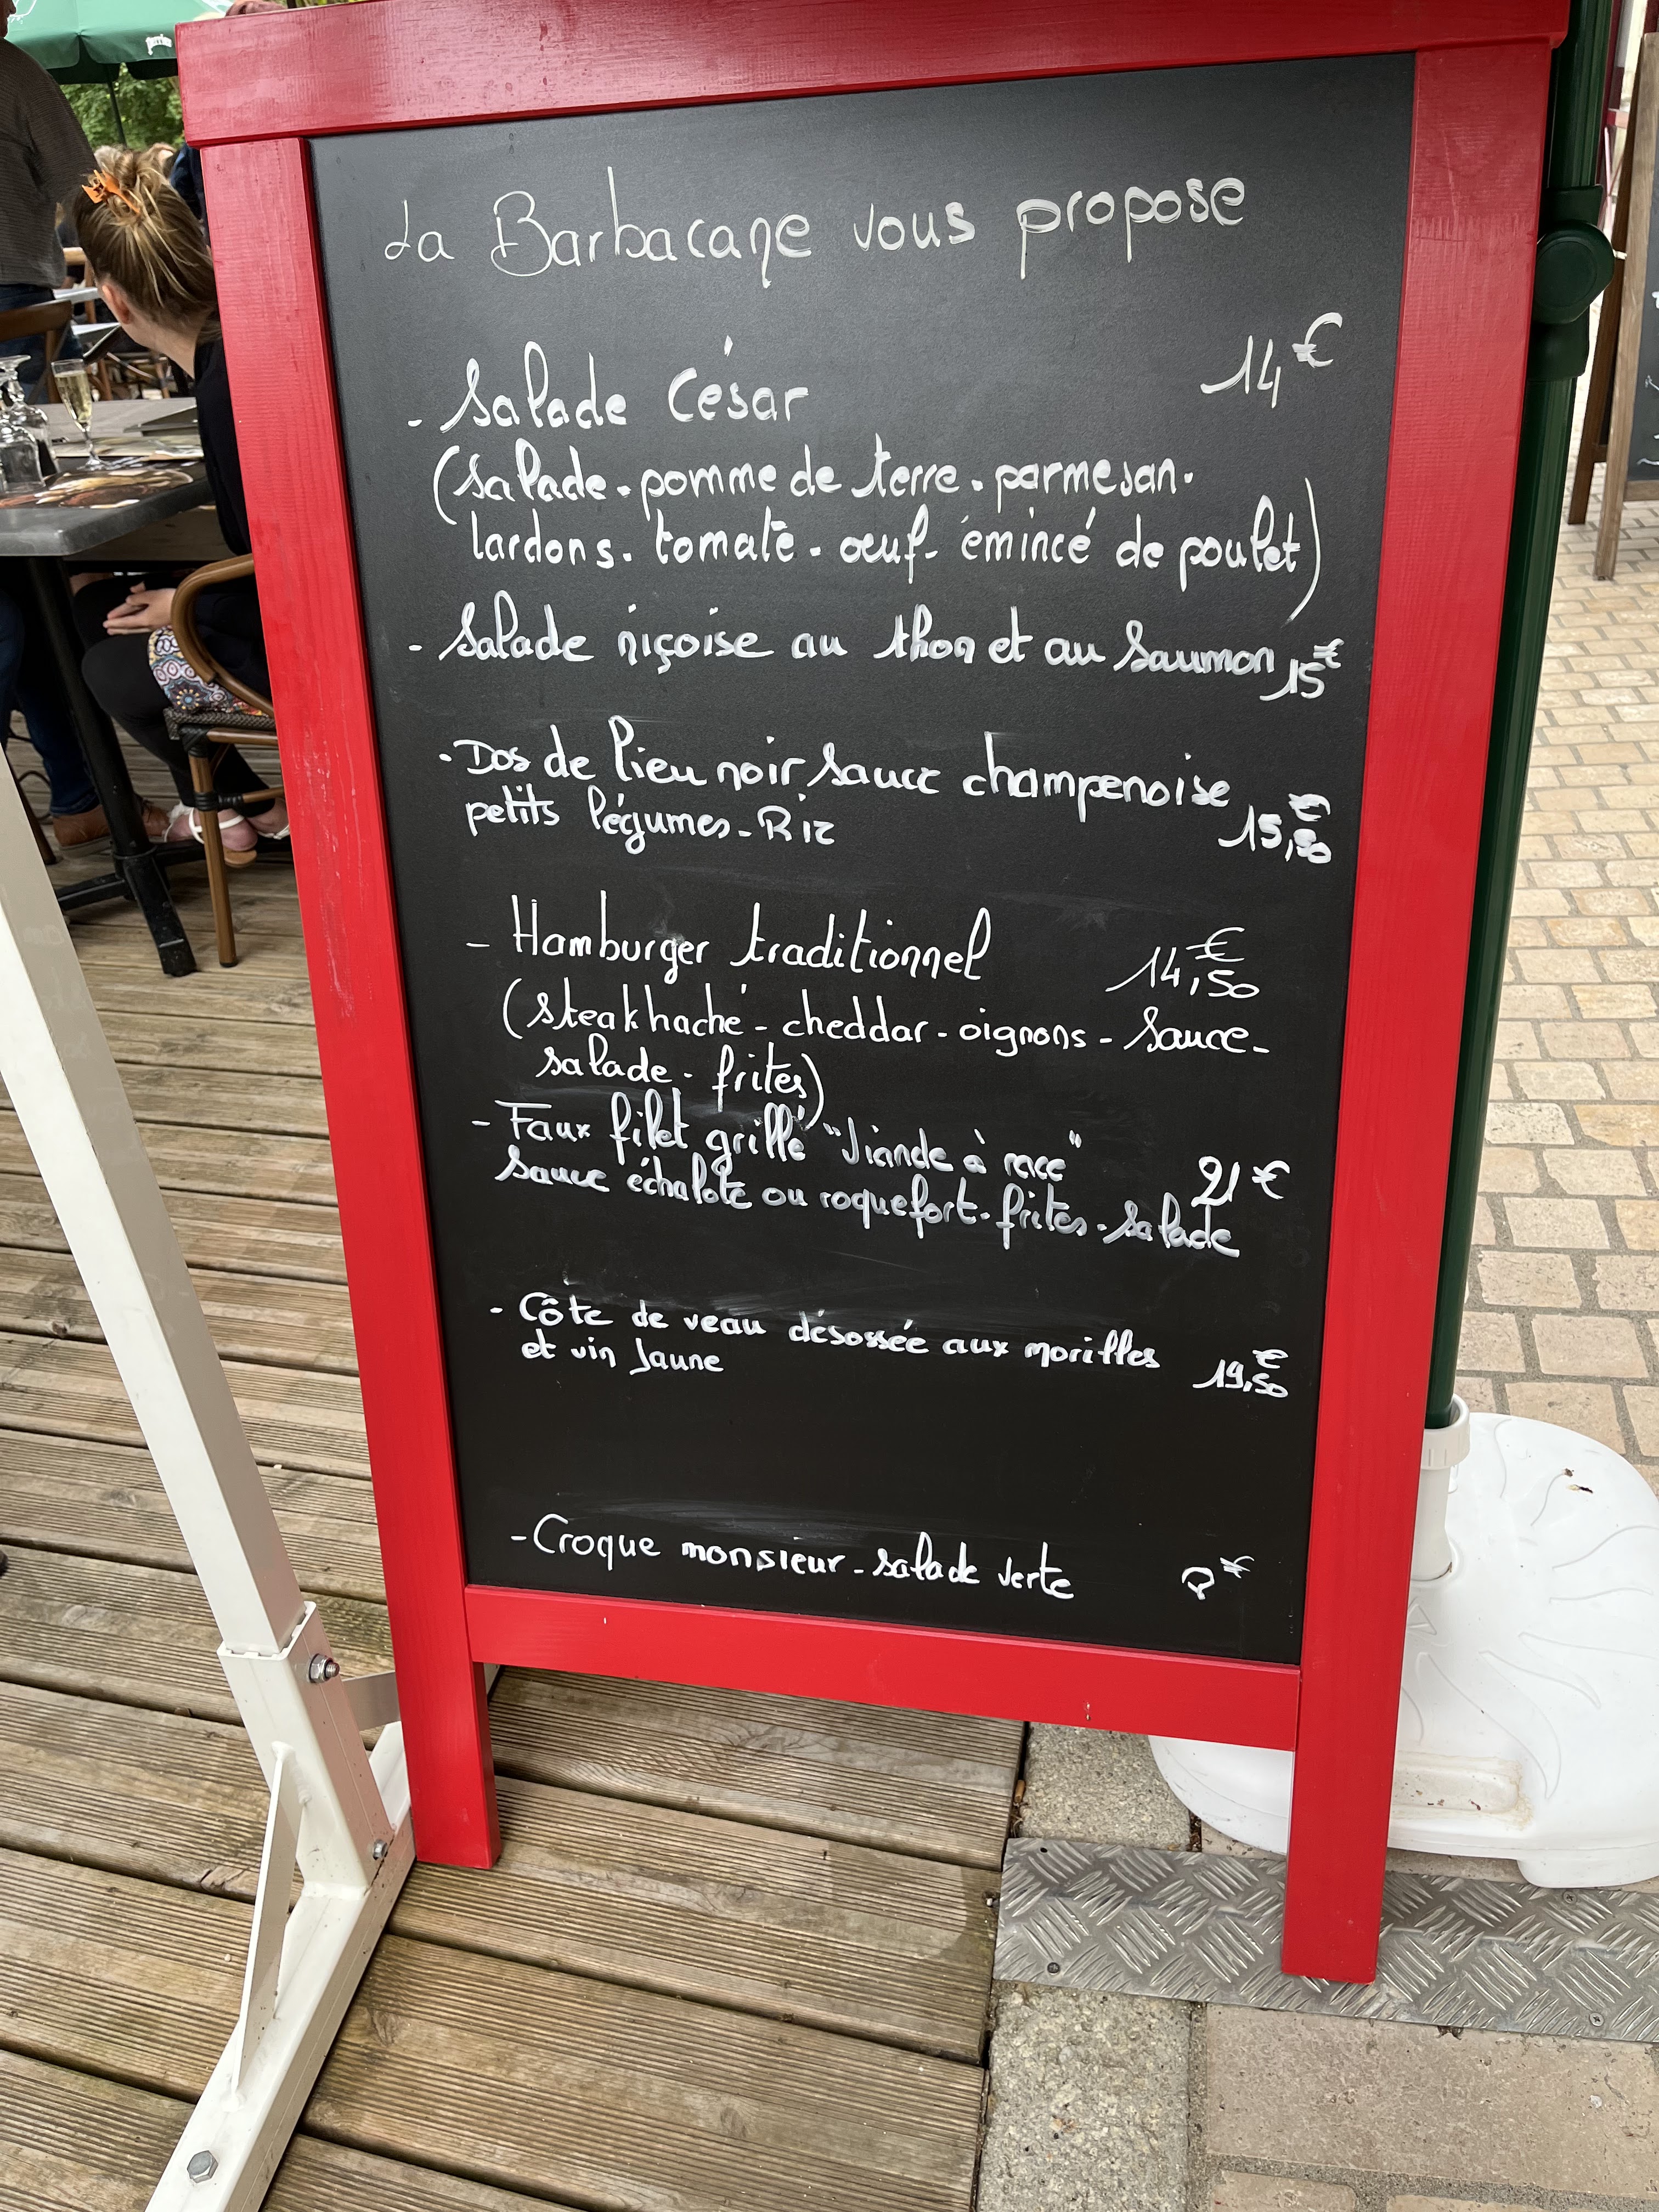 La Barbacane vous propose
- Salade César 14€
(Salade. pomme de terre. parmesan.
lardons. tomate. œuf- émincé de poulet)
- Salade niçoise au thon et au Saumon 15€
- Dos de lieu noir sauce champenoise
petits légumes - Riz 15,50€
- Hamburger traditionnel 14,50€
(steak haché - cheddar - oignons - Sauce -
salade - frites)
- Faux filet grillé "Viande à race" 21€
Sauce échalote ou roquefort. frites - Salade
- Côte de veau désossée aux morilles
et vin Jaune 19,50€
- Croque monsieur - salade verte